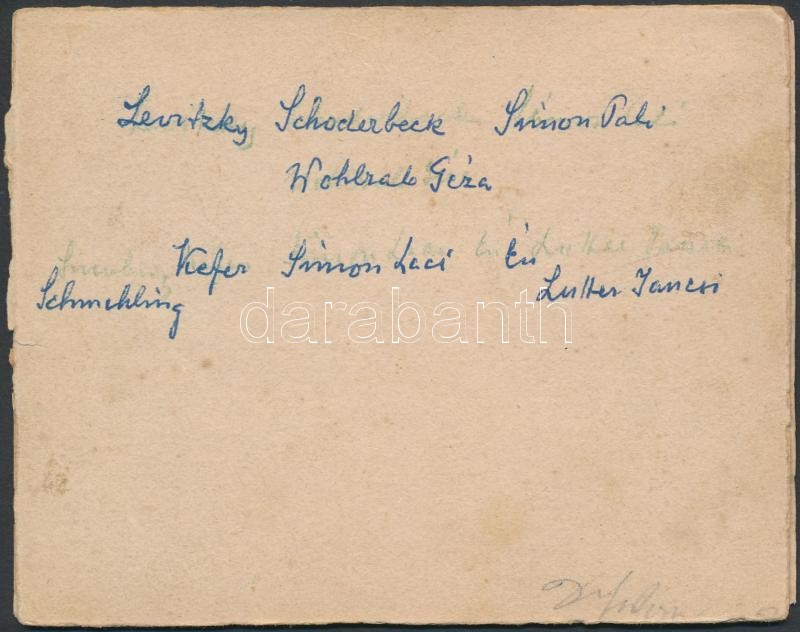 Levitzky Schoderbeck Simon Pali
Wohlrab Géza
Kefer Simon Laci Én
Schmehling Lutter Jancsi
darabanth